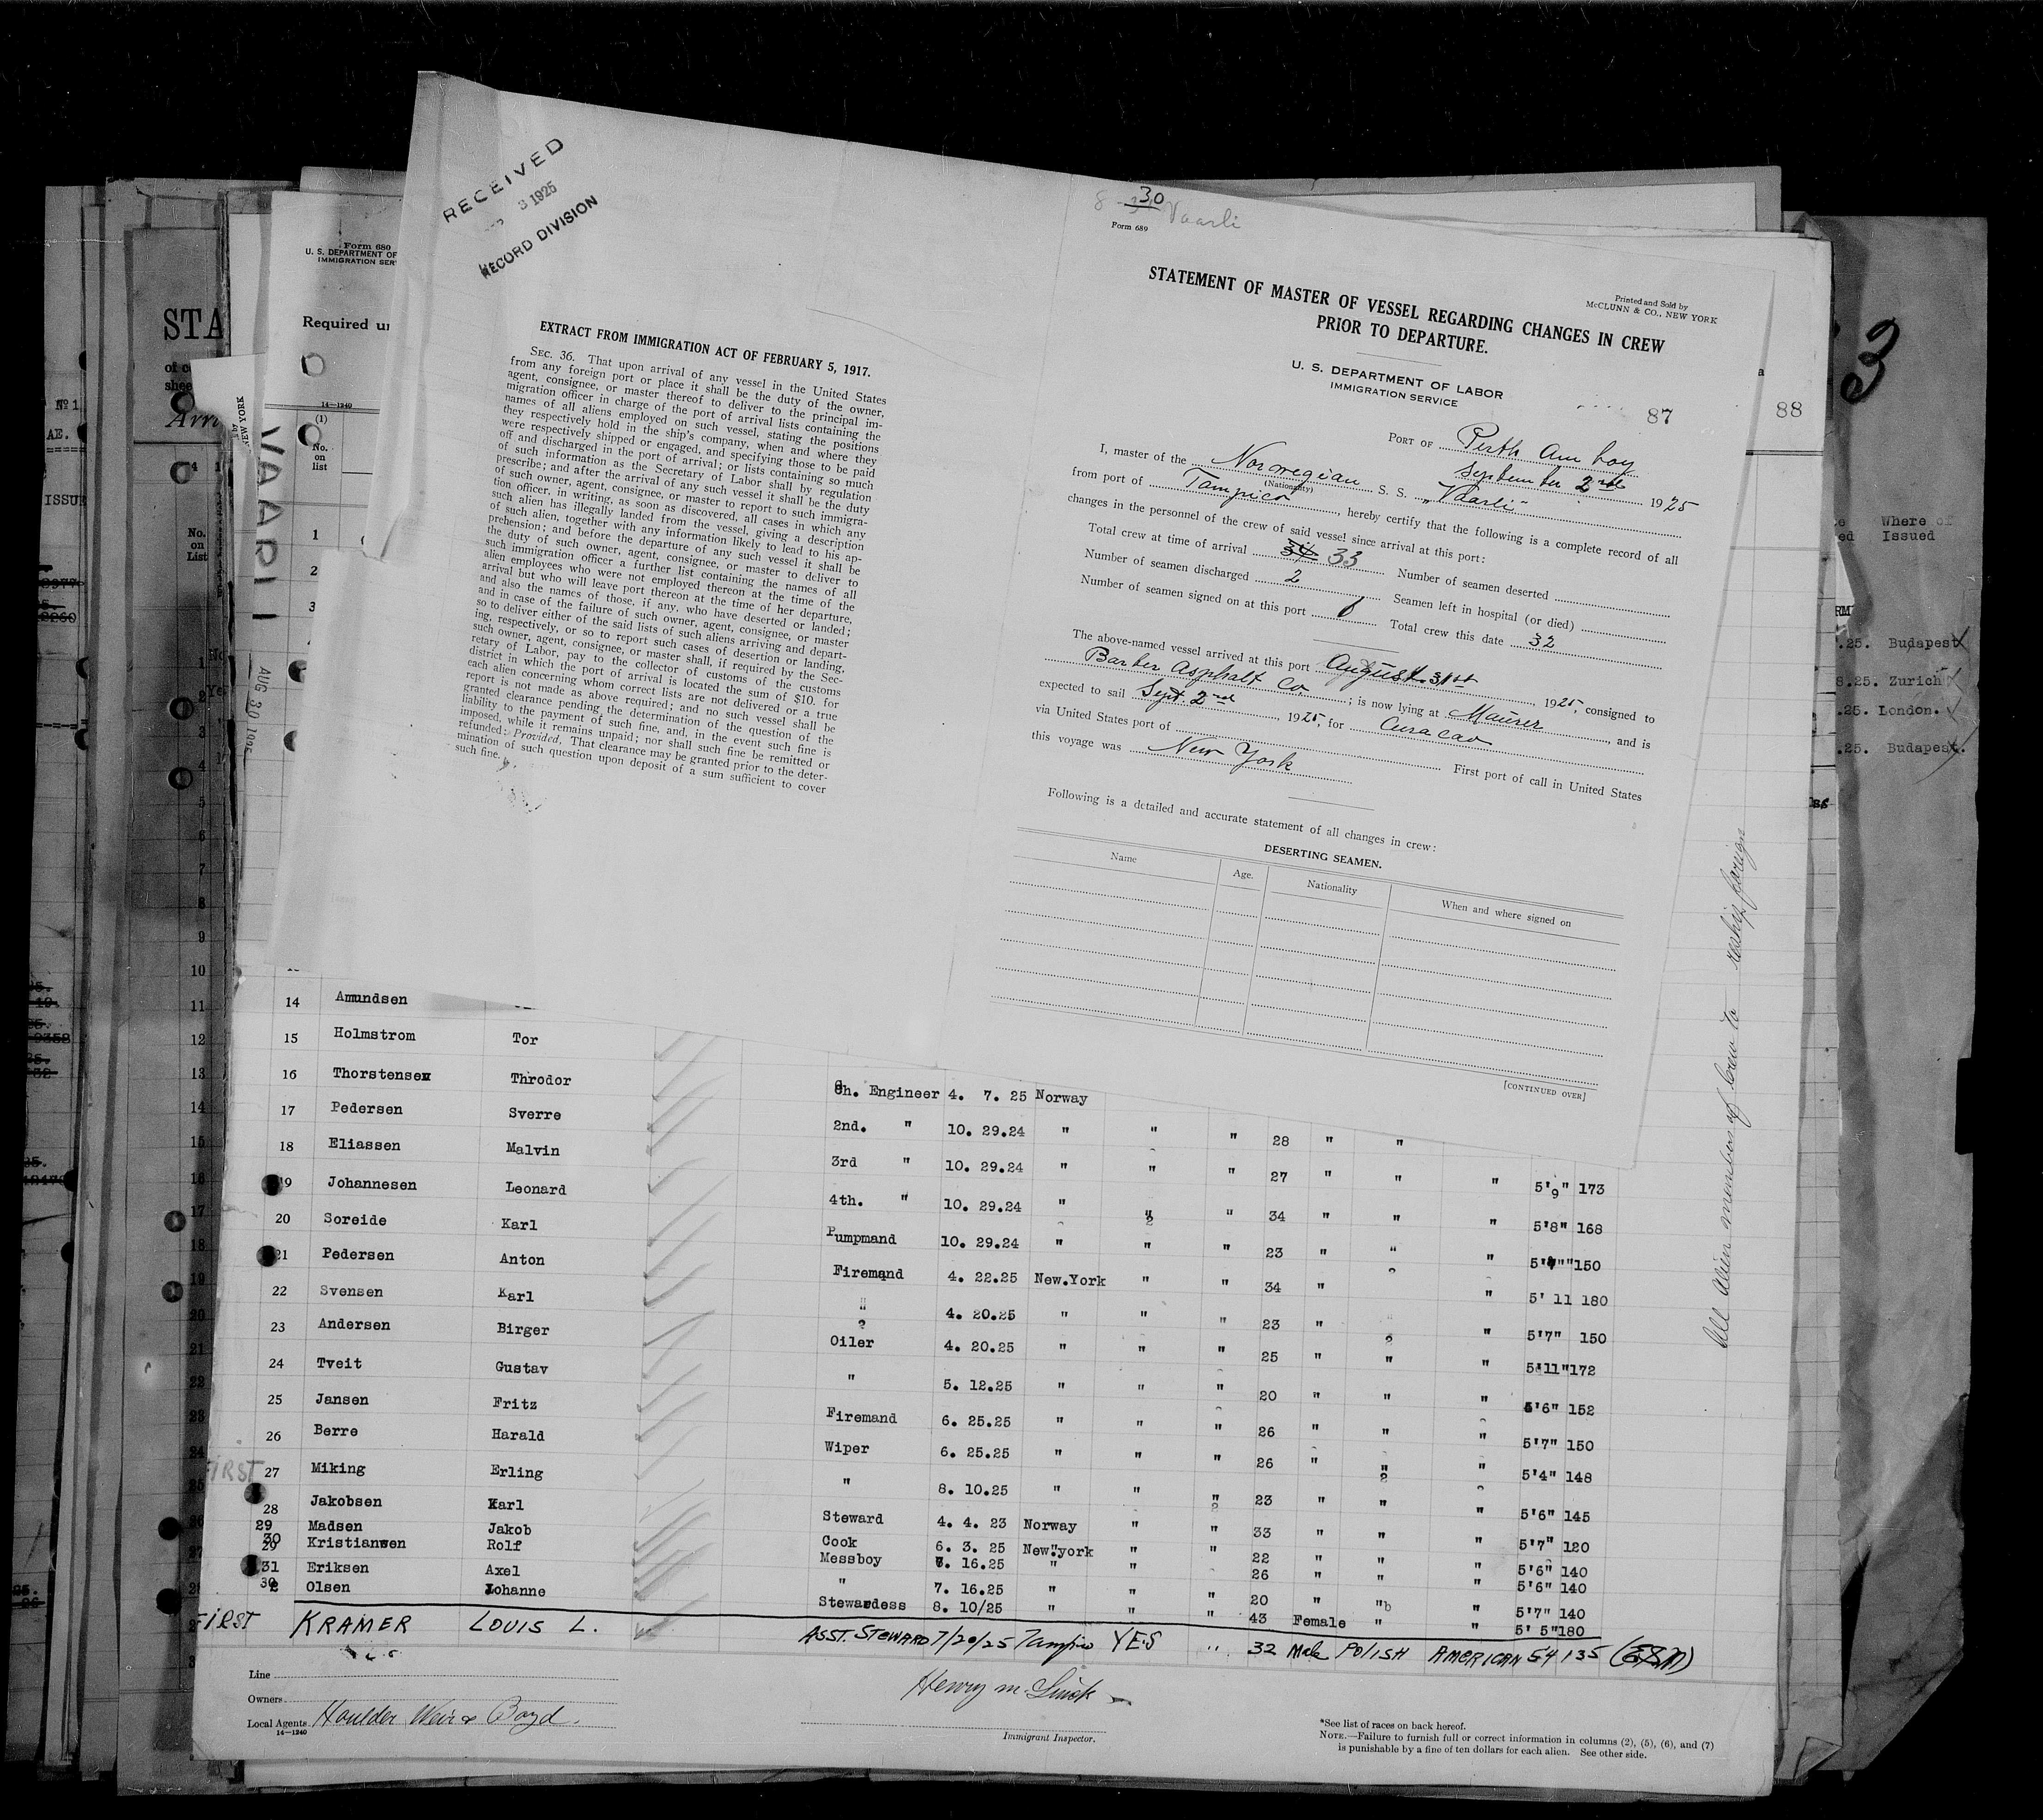 RECEIVED
3 1925
RECORD DIVISION
EXTRACT FROM IMMIGRATION ACT OF FEBRUARY 5, 1917.
SEC. 36. That upon arrival of any vessel in the United States
from any foreign port or place it shall be the duty of the owner,
agent, consignee, or master thereof to deliver to the principal im-
migration officer in charge of the port of arrival lists containing the
names of all aliens employed on such vessel, stating the positions
they respectively hold in the ship's company, when and where they
were respectively shipped or engaged, and specifying those to be paid
off and discharged in the port of arrival; or lists containing so much
of such information as the Secretary of Labor shall by regulation
prescribe; and after the arrival of any such vessel it shall be the duty
of such owner, agent, consignee, or master to report to such immigra-
tion officer, in writing, as soon as discovered, all cases in which any
such alien has illegally landed from the vessel, giving a description
of such alien, together with any information likely to lead to his ap-
prehension; and before the departure of any such vessel it shall be
the duty of such owner, agent, consignee, or master to deliver to
such immigration officer a further list containing the names of all
alien employees who were not employed thereon at the time of the
arrival but who will leave port thereon at the time of her departure,
and also the names of those, if any, who have deserted or landed;
and in case of the failure of such owner, agent, consignee, or master
so to deliver either of the said lists of such aliens arriving and depart-
ing, respectively, or so to report such cases of desertion or landing,
such owner, agent, consignee, or master shall, if required by the Sec-
retary of Labor, pay to the collector of customs of the customs
district in which the port of arrival is located the sum of $10. for
each alien concerning whom correct lists are not delivered or a true
report is not made as above required; and no such vessel shall be
granted clearance pending the determination of the question of the
liability to the payment of such fine, and, in the event such fine is
imposed, while it remains unpaid; nor shall such fine be remitted or
refunded: Provided, That clearance may be granted prior to the deter-
mination of such question upon deposit of a sum sufficient to cover
such fine.
8 30 Vaarli
Form 689
Printed and Sold by
McCLUNN & CO., NEW YORK
STATEMENT OF MASTER OF VESSEL REGARDING CHANGES IN CREW
PRIOR TO DEPARTURE.
U. S. DEPARTMENT OF LABOR
IMMIGRATION SERVICE
87
88
PORT OF Perth Amboy
September 2nd 1925
I, master of the Norwegian S. S. "Vaarli"
(Nationality)
from port of Tampico, hereby certify that the following is a complete record of all
changes in the personnel of the crew of said vessel since arrival at this port:
Total crew at time of arrival 34 33 Number of seamen deserted
Number of seamen discharged 2 Seamen left in hospital (or died)
Number of seamen signed on at this port 1 Total crew this date 32
The above-named vessel arrived at this port August 31st 1925, consigned to
Barber Asphalt Co.; is now lying at Maurer, and is
expected to sail Sept. 2nd, 1925, for Curacao
via United States port of First port of call in United States
this voyage was New York
Following is a detailed and accurate statement of all changes in crew:
DESERTING SEAMEN.
Name Age. Nationality When and where signed on
[CONTINUED OVER]
Form 680
U. S. DEPARTMENT OF
IMMIGRATION SER
Required u
14—1240
(1)
No.
on
list
1
2
3
VAARLI
AUG 30 1925
NEW YORK
STA
Arri
No.
on
List
Nº 1
Where of
Issued
.25. Budapest
8.25. Zurich
.25. London.
.25. Budapest.
3
14 Amundsen
15 Holmstrom Tor
16 Thorstensen Throdor Ch. Engineer 4. 7. 25 Norway
17 Pedersen Sverre 2nd. " 10. 29.24 " " " 28 " "
18 Eliassen Malvin 3rd " 10. 29.24 " " " 27 " " " 5'9" 173
19 Johannesen Leonard 4th. " 10. 29.24 " " " 34 " " " 5'8" 168
20 Soreide Karl Pumpmand 10. 29.24 " " " 23 " " " 5'4" 150
21 Pedersen Anton Firemand 4. 22.25 New.York " " 34 " " 5' 11 180
22 Svensen Karl " 4. 20.25 " " " 23 " " " 5'7" 150
23 Andersen Birger Oiler 4. 20.25 " " " 25 " " " 5'11" 172
24 Tveit Gustav " 5. 12.25 " " " 20 " " " 5'6" 152
25 Jansen Fritz Firemand 6. 25.25 " " " 26 " " " 5'7" 150
26 Berre Harald Wiper 6. 25.25 " " " 26 " " " 5'4" 148
FIRST 27 Miking Erling " 8. 10.25 " " " 23 " " " 5'6" 145
28 Jakobsen Karl Steward 4. 4. 23 Norway " " 33 " " " 5'7" 120
29 Madsen Jakob Cook 6. 3. 25 New.york " " 22 " " " 5'6" 140
30 Kristiansen Rolf Messboy 7. 16.25 " " 26 " " " 5'6" 140
31 Eriksen Axel " 7. 16.25 " " " 20 " " " 5'7" 140
Olsen Johanne Stewardess 8. 10/25 " " " 43 Female " " 5' 5" 180
FIRST KRAMER LOUIS L. ASST. STEWARD 7/20/25 Tampico YES " 32 Male POLISH AMERICAN 54 135
All Alien members of Crew to reship foreign
Line
Owners
Local Agents Houlder Weir & Boyd.
14—1240
Immigrant Inspector.
*See list of races on back hereof.
NOTE.—Failure to furnish full or correct information in columns (2), (5), (6), and (7)
is punishable by a fine of ten dollars for each alien. See other side.